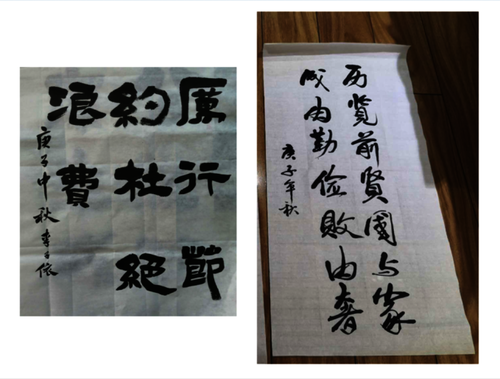 厲行節
約杜絕
浪費
庚子中秋 李
历览前賢國与家
成由勤俭敗由奢
庚子年秋